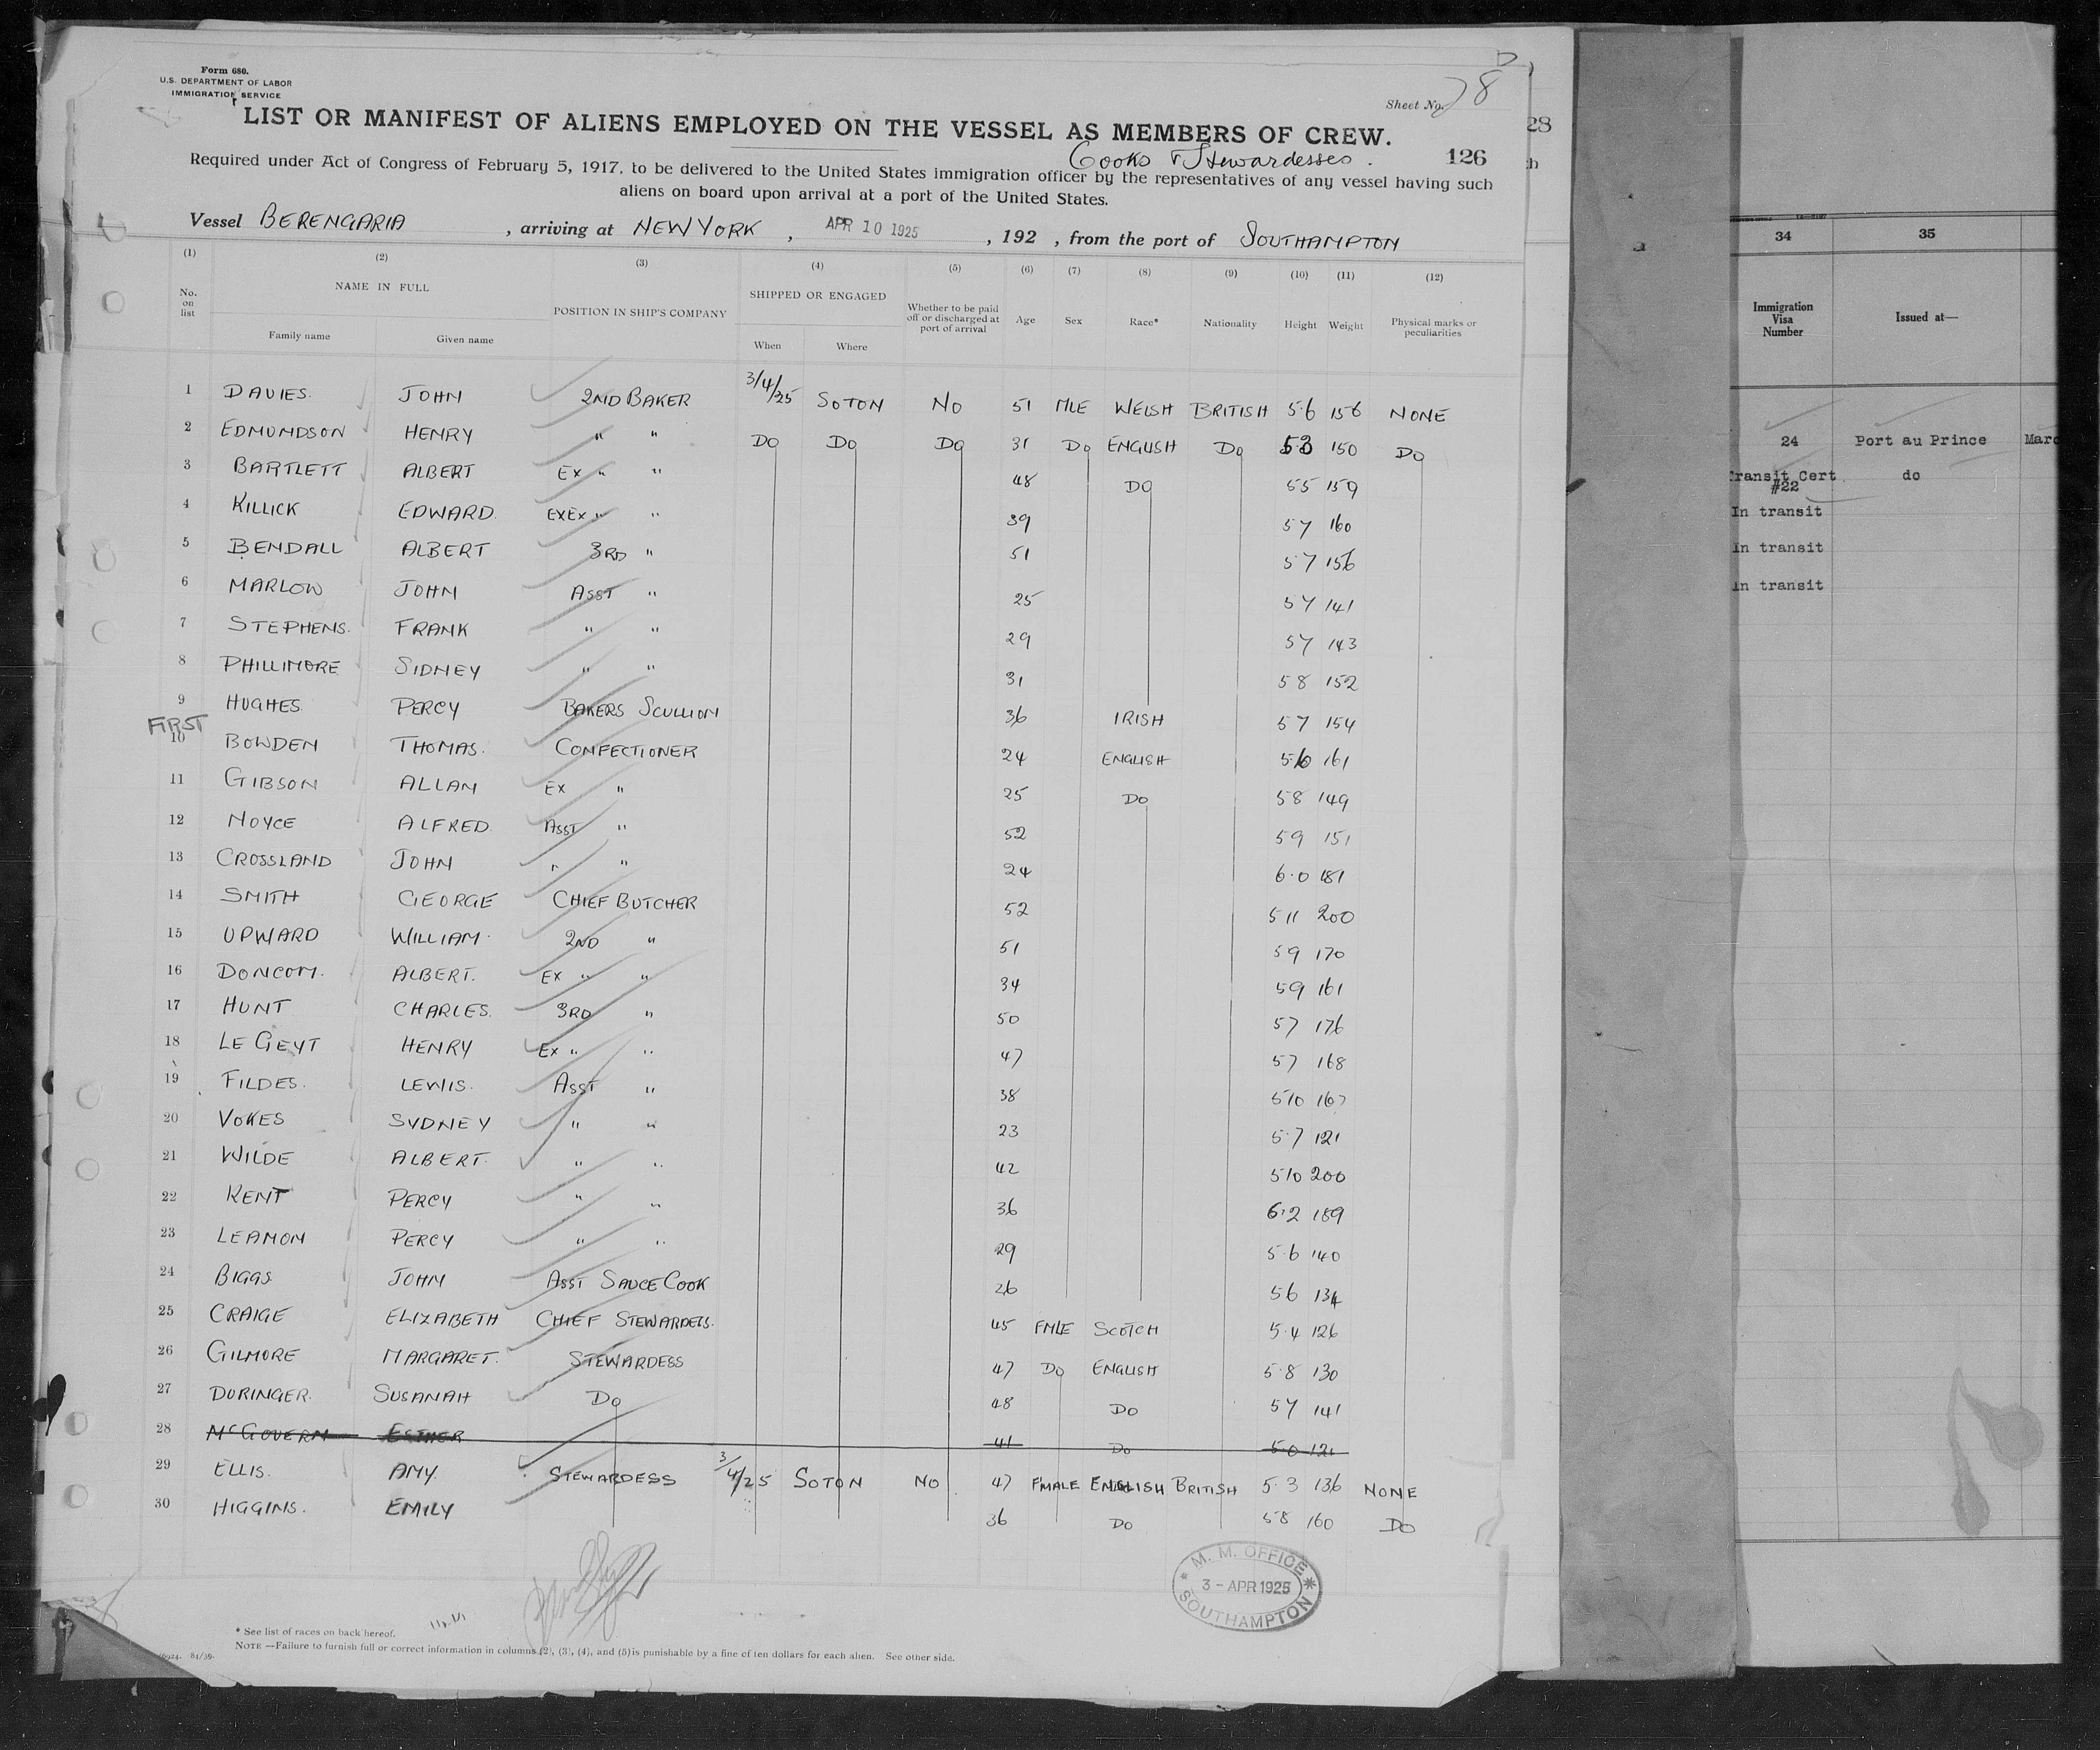 Form 680.
U.S. DEPARTMENT OF LABOR
IMMIGRATION SERVICE
Sheet No. 8
LIST OR MANIFEST OF ALIENS EMPLOYED ON THE VESSEL AS MEMBERS OF CREW.
Cooks & Stewardesses.
126
Required under Act of Congress of February 5, 1917, to be delivered to the United States immigration officer by the representatives of any vessel having such
aliens on board upon arrival at a port of the United States.
Vessel BERENGARIA , arriving at NEW YORK , APR 10 1925 , 192 , from the port of SOUTHAMPTON
(1) (2) (3) (4) (5) (6) (7) (8) (9) (10) (11) (12)
No. on list NAME IN FULL POSITION IN SHIP'S COMPANY SHIPPED OR ENGAGED Whether to be paid off or discharged at port of arrival Age Sex Race* Nationality Height Weight Physical marks or peculiarities
Family name Given name When Where
1 DAVIES. JOHN 2ND BAKER 3/4/25 SOTON NO 51 MLE WELSH BRITISH 5.6 156 NONE
2 EDMUNDSON HENRY " " DO DO DO 31 DO ENGLISH DO 53 150 DO
3 BARTLETT ALBERT EX " " 48 DO 55 159
4 KILLICK EDWARD. EXEX " " 39 57 160
5 BENDALL ALBERT 3RD " 51 57 156
6 MARLOW JOHN ASST " 25 57 141
7 STEPHENS. FRANK " " 29 57 143
8 PHILLIMORE SIDNEY " " 31 58 152
9 HUGHES. PERCY BAKERS SCULLION 36 IRISH 57 154
FIRST
10 BOWDEN THOMAS. CONFECTIONER 24 ENGLISH 56 161
11 GIBSON ALLAN EX " 25 DO 58 149
12 NOYCE ALFRED. ASST " 52 59 151
13 CROSSLAND JOHN " " 24 6.0 181
14 SMITH GEORGE CHIEF BUTCHER 52 5 11 200
15 UPWARD WILLIAM. 2ND " 51 59 170
16 DONCOM. ALBERT. EX " " 34 59 161
17 HUNT CHARLES. 3RD " 50 57 176
18 LE GEYT HENRY EX " " 47 57 168
19 FILDES. LEWIS. ASST " 38 510 167
20 VOKES SYDNEY " " 23 5.7 121
21 WILDE ALBERT. " " 42 510 200
22 KENT PERCY " " 36 6.2 189
23 LEAMON PERCY " " 29 5.6 140
24 BIGGS JOHN ASST SAUCE COOK 26 56 134
25 CRAIGE ELIZABETH CHIEF STEWARDESS. 45 FMLE SCOTCH 5.4 126
26 GILMORE MARGARET. STEWARDESS 47 DO ENGLISH 5.8 130
27 DURINGER. SUSANAH DO 48 DO 57 141
28 McGOVERN ESTHER 41 DO 5.0 121
29 ELLIS. AMY. STEWARDESS 3/4/25 SOTON NO. 47 FMALE ENGLISH BRITISH 5.3 136 NONE
30 HIGGINS. EMILY 36 DO 58 160 DO
M. M. OFFICE
3 - APR 1925
SOUTHAMPTON
* See list of races on back hereof.
NOTE.—Failure to furnish full or correct information in columns (2), (3), (4), and (5) is punishable by a fine of ten dollars for each alien. See other side.
84/39.
28
34 35
Immigration Visa Number Issued at—
24 Port au Prince Marc
Transit Cert #22 do
In transit
In transit
In transit